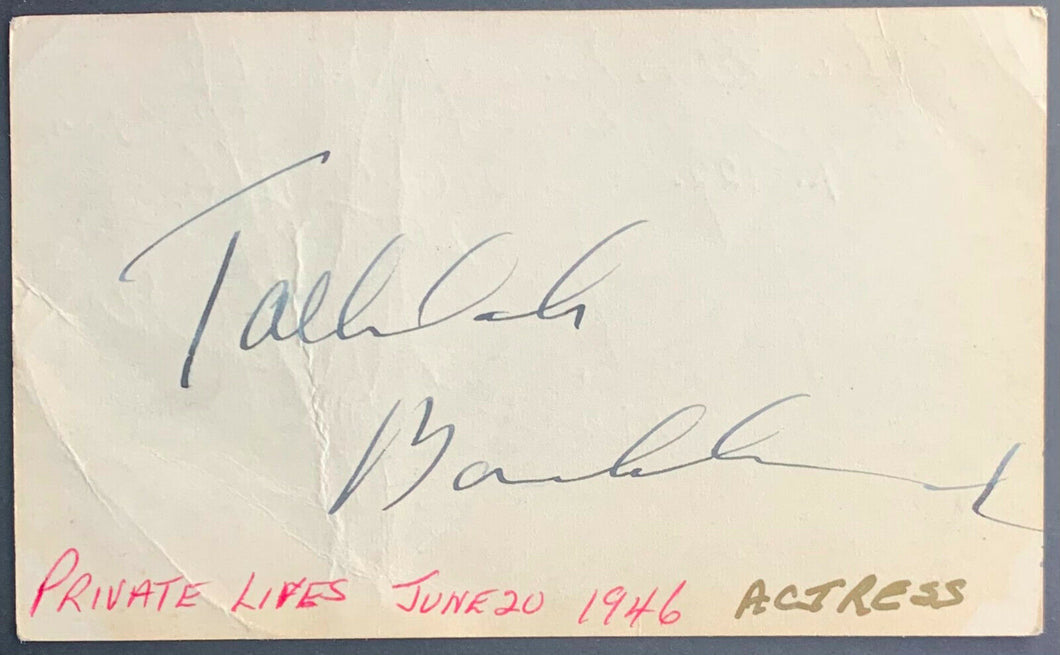 Tallulah
Bankhead
PRIVATE LIVES JUNE 20 1946 ACTRESS